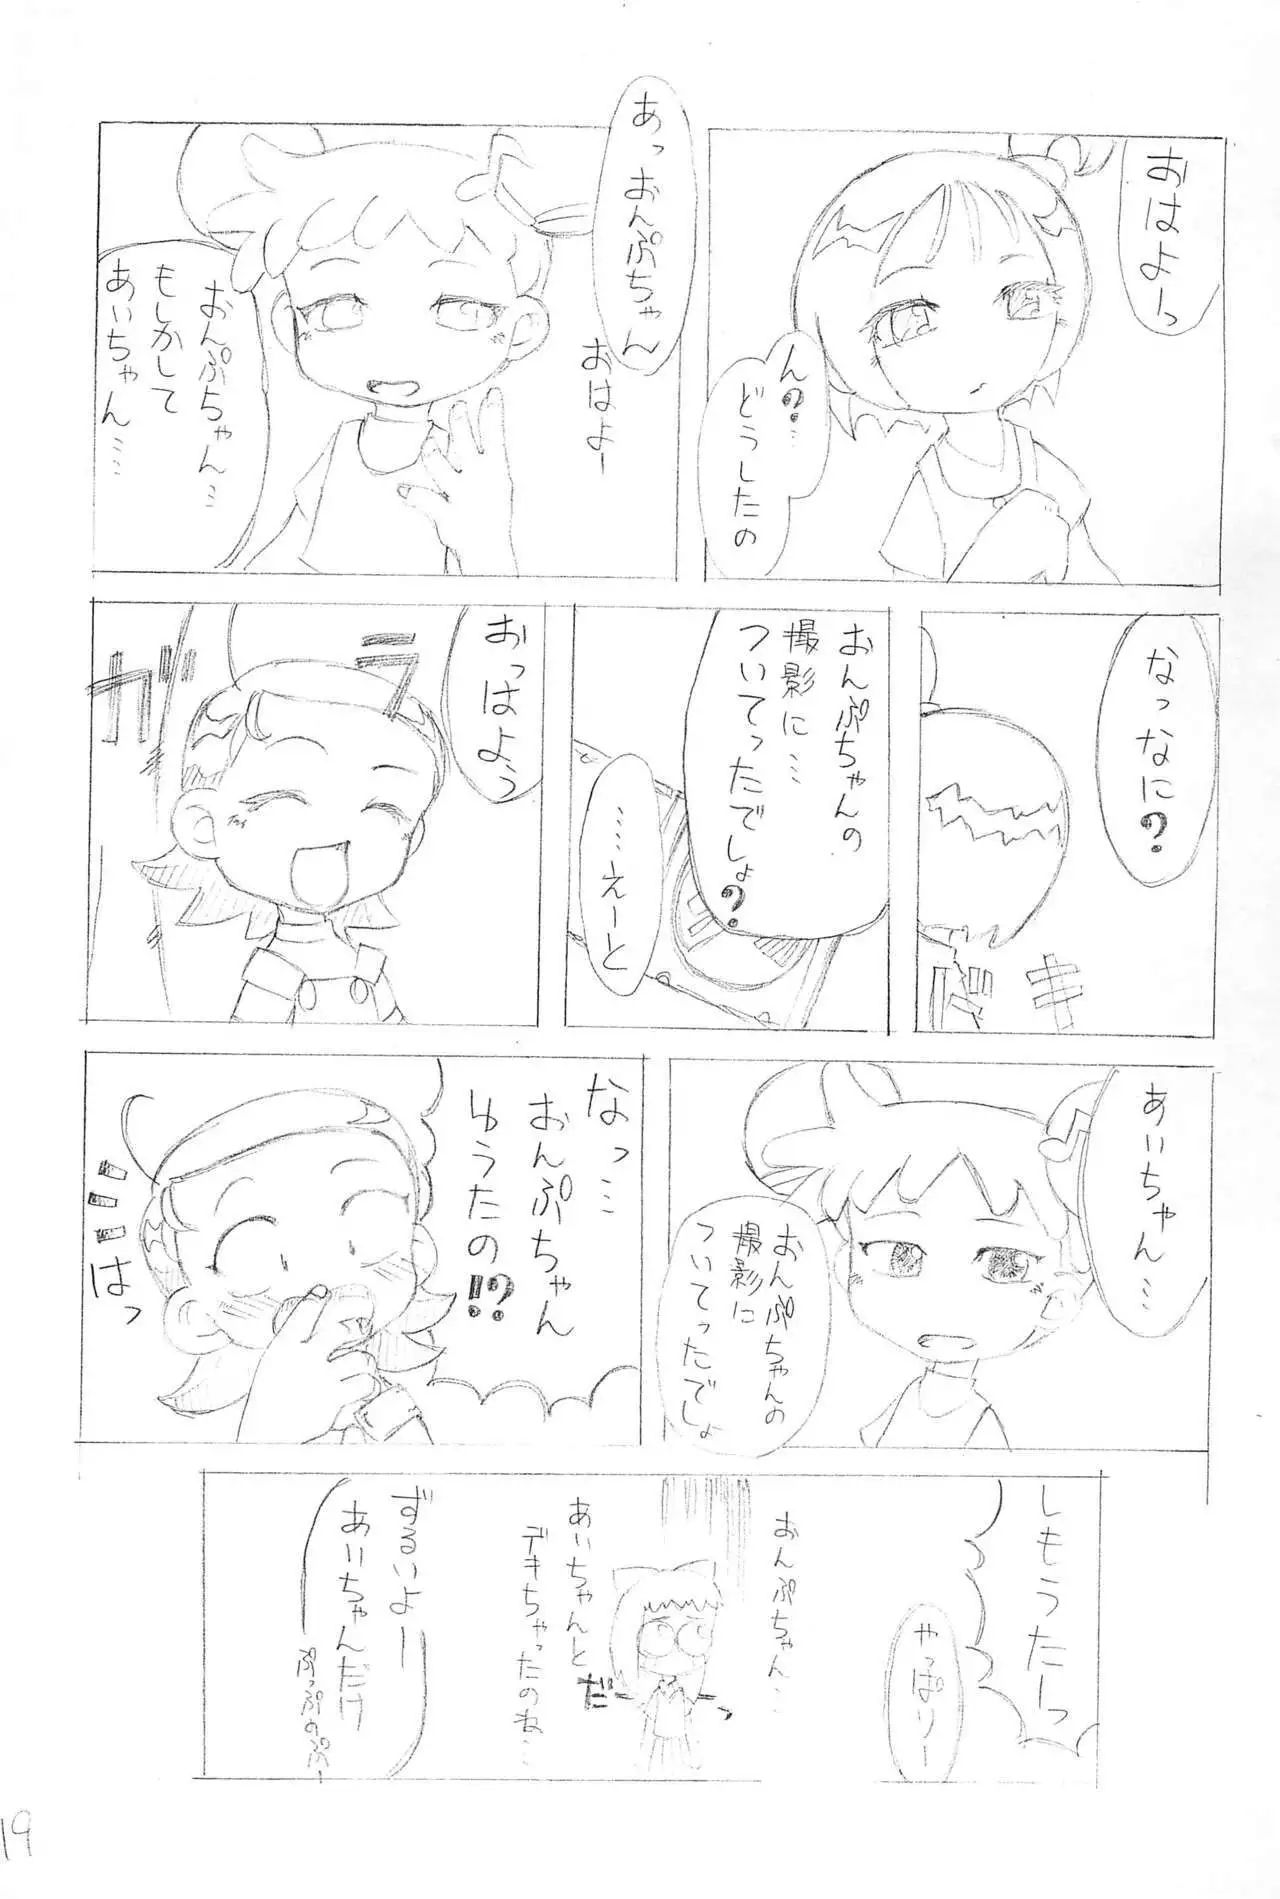 おはよーっ
ん?…
どうしたの
あっおんぷちゃん
おはよー
おんぷちゃん…
もしかして
あいちゃん……
なっなに?
ギ
おんぷちゃんの
撮影に…
ついてったでしょ?
……えーと
おっはよう
ガラ
あいちゃん…
おんぷちゃんの
撮影に
ついてったでしょ
なっ…
おんぷちゃん
ゆうたの!?
はっ
しもうたーっ
やっぱりー
おんぷちゃん…
だーっ
あいちゃんと
デキちゃったのね…
ずるいよー
あいちゃんだけ
ぷっぷのぷー
19